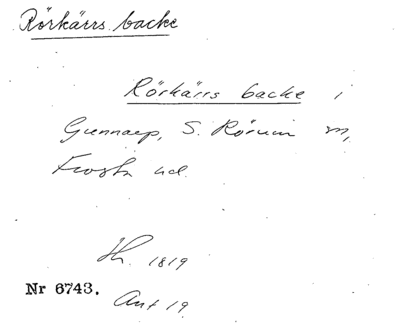 Rörkärrs backe
Rörkärrs backe i
Gunnarp, S. Rörum sn,
Frosta hd.
1819
Nr 6743.
Ant 19